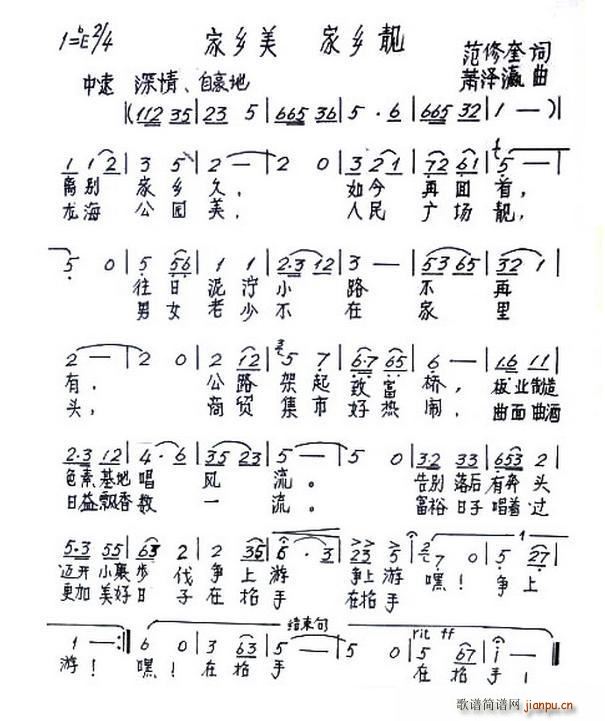 1=♭E 2/4
家乡美 家乡靓
范修奎 词
萧泽瀛 曲
中速 深情、自豪地
(112 35 | 23 5 | 665 36 | 5 · 6 | 665 32 | 1 — )
1 12 | 3 5 | 2 — | 2 0 | 32 1 | 72 61 | 5 —
离别 家乡 久, 如今 再回 首,
龙海 公园 美, 人民 广场 靓,
5 0 | 5 56 | 1 1 | 2·3 12 | 3 — | 53 65 | 32 1
往日 泥泞 小 路 不 再
男女 老少 不 在 家 里
2 — | 2 0 | 2 12 | 5 7 | 6·7 65 | 6 — | 16 11
有, 公路 架起 致富 桥, 板业街道
头, 商贸 集市 好热 闹, 曲面曲酒
2·3 12 | 4 · 6 | 35 23 | 5 — | 5 0 | 3·2 33 | 653 3
色素基地 唱 风 流。 告别落后 有奔头
日益飘香 数 一 流。 富裕日子 唱着过
5·3 55 | 63 2 | 2 35 | 6 · 3 | 23 5 | 7 0 | 5 27
迈开小裹步 伐 争上 游 争上游 嘿! 争上
更加美好日 子 在抬 手 在抬手
结束句 rit ff
1 — :| 6 0 | 3 63 | 5 — | 5 0 | 5 67 | i —
游! 嘿! 在抬 手 在抬 手!
歌谱简谱网
jianpu.cn